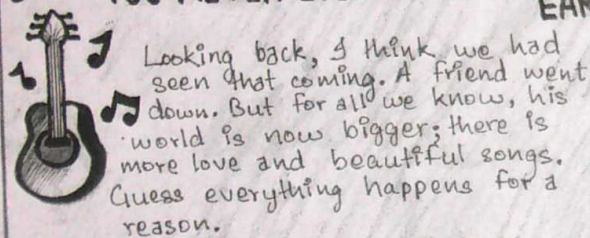 EAR
Looking back, I think we had
seen that coming. A friend went
down. But for all we know, his
world is now bigger; there is
more love and beautiful songs.
Guess everything happens for a
reason.